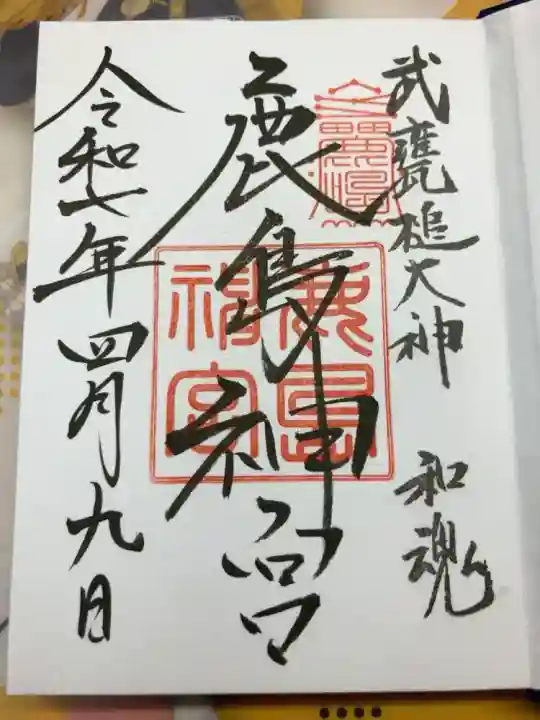 武甕槌大神 和魂
鹿島神宮
鹿島神宮
令和七年四月九日